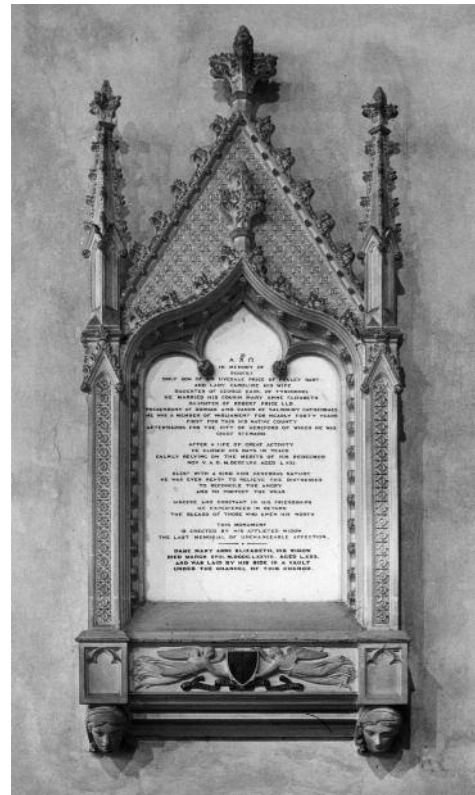 Α ☧ Ω
IN MEMORY OF
ROBERT
ONLY SON OF SIR UVEDALE PRICE OF FOXLEY BART
AND LADY CAROLINE HIS WIFE
DAUGHTER OF GEORGE EARL OF TYRCONNEL
HE MARRIED HIS COUSIN MARY ANNE ELIZABETH
DAUGHTER OF ROBERT PRICE LLD
PREBENDARY OF DURHAM AND CANON OF SALISBURY CATHEDRALS
HE WAS A MEMBER OF PARLIAMENT FOR NEARLY FORTY YEARS
FIRST FOR THIS HIS NATIVE COUNTY
AFTERWARDS FOR THE CITY OF HEREFORD OF WHICH HE WAS
CHIEF STEWARD
AFTER A LIFE OF GREAT ACTIVITY
HE CLOSED HIS DAYS IN PEACE
CALMLY RELYING ON THE MERITS OF HIS REDEEMER
NOV V. A. D. MDCCCLVII. AGED
BLEST WITH A KIND AND GENEROUS NATURE
HE WAS EVER READY TO RELIEVE THE DISTRESSED
TO RECONCILE THE ANGRY
AND TO SUPPORT THE WEAK
SINCERE AND CONSTANT IN HIS FRIENDSHIPS
HE EXPERIENCED IN RETURN
THE REGARD OF THOSE WHO KNEW HIS WORTH
THIS MONUMENT
IS ERECTED BY HIS AFFLICTED WIDOW
THE LAST MEMORIAL OF UNCHANGEABLE AFFECTION.
DAME MARY ANNE ELIZABETH, HIS WIDOW
DIED MARCH MDCCCLXXVIII. AGED
AND WAS LAID BY HIS SIDE IN A VAULT
UNDER THE CHANCEL OF THIS CHURCH.